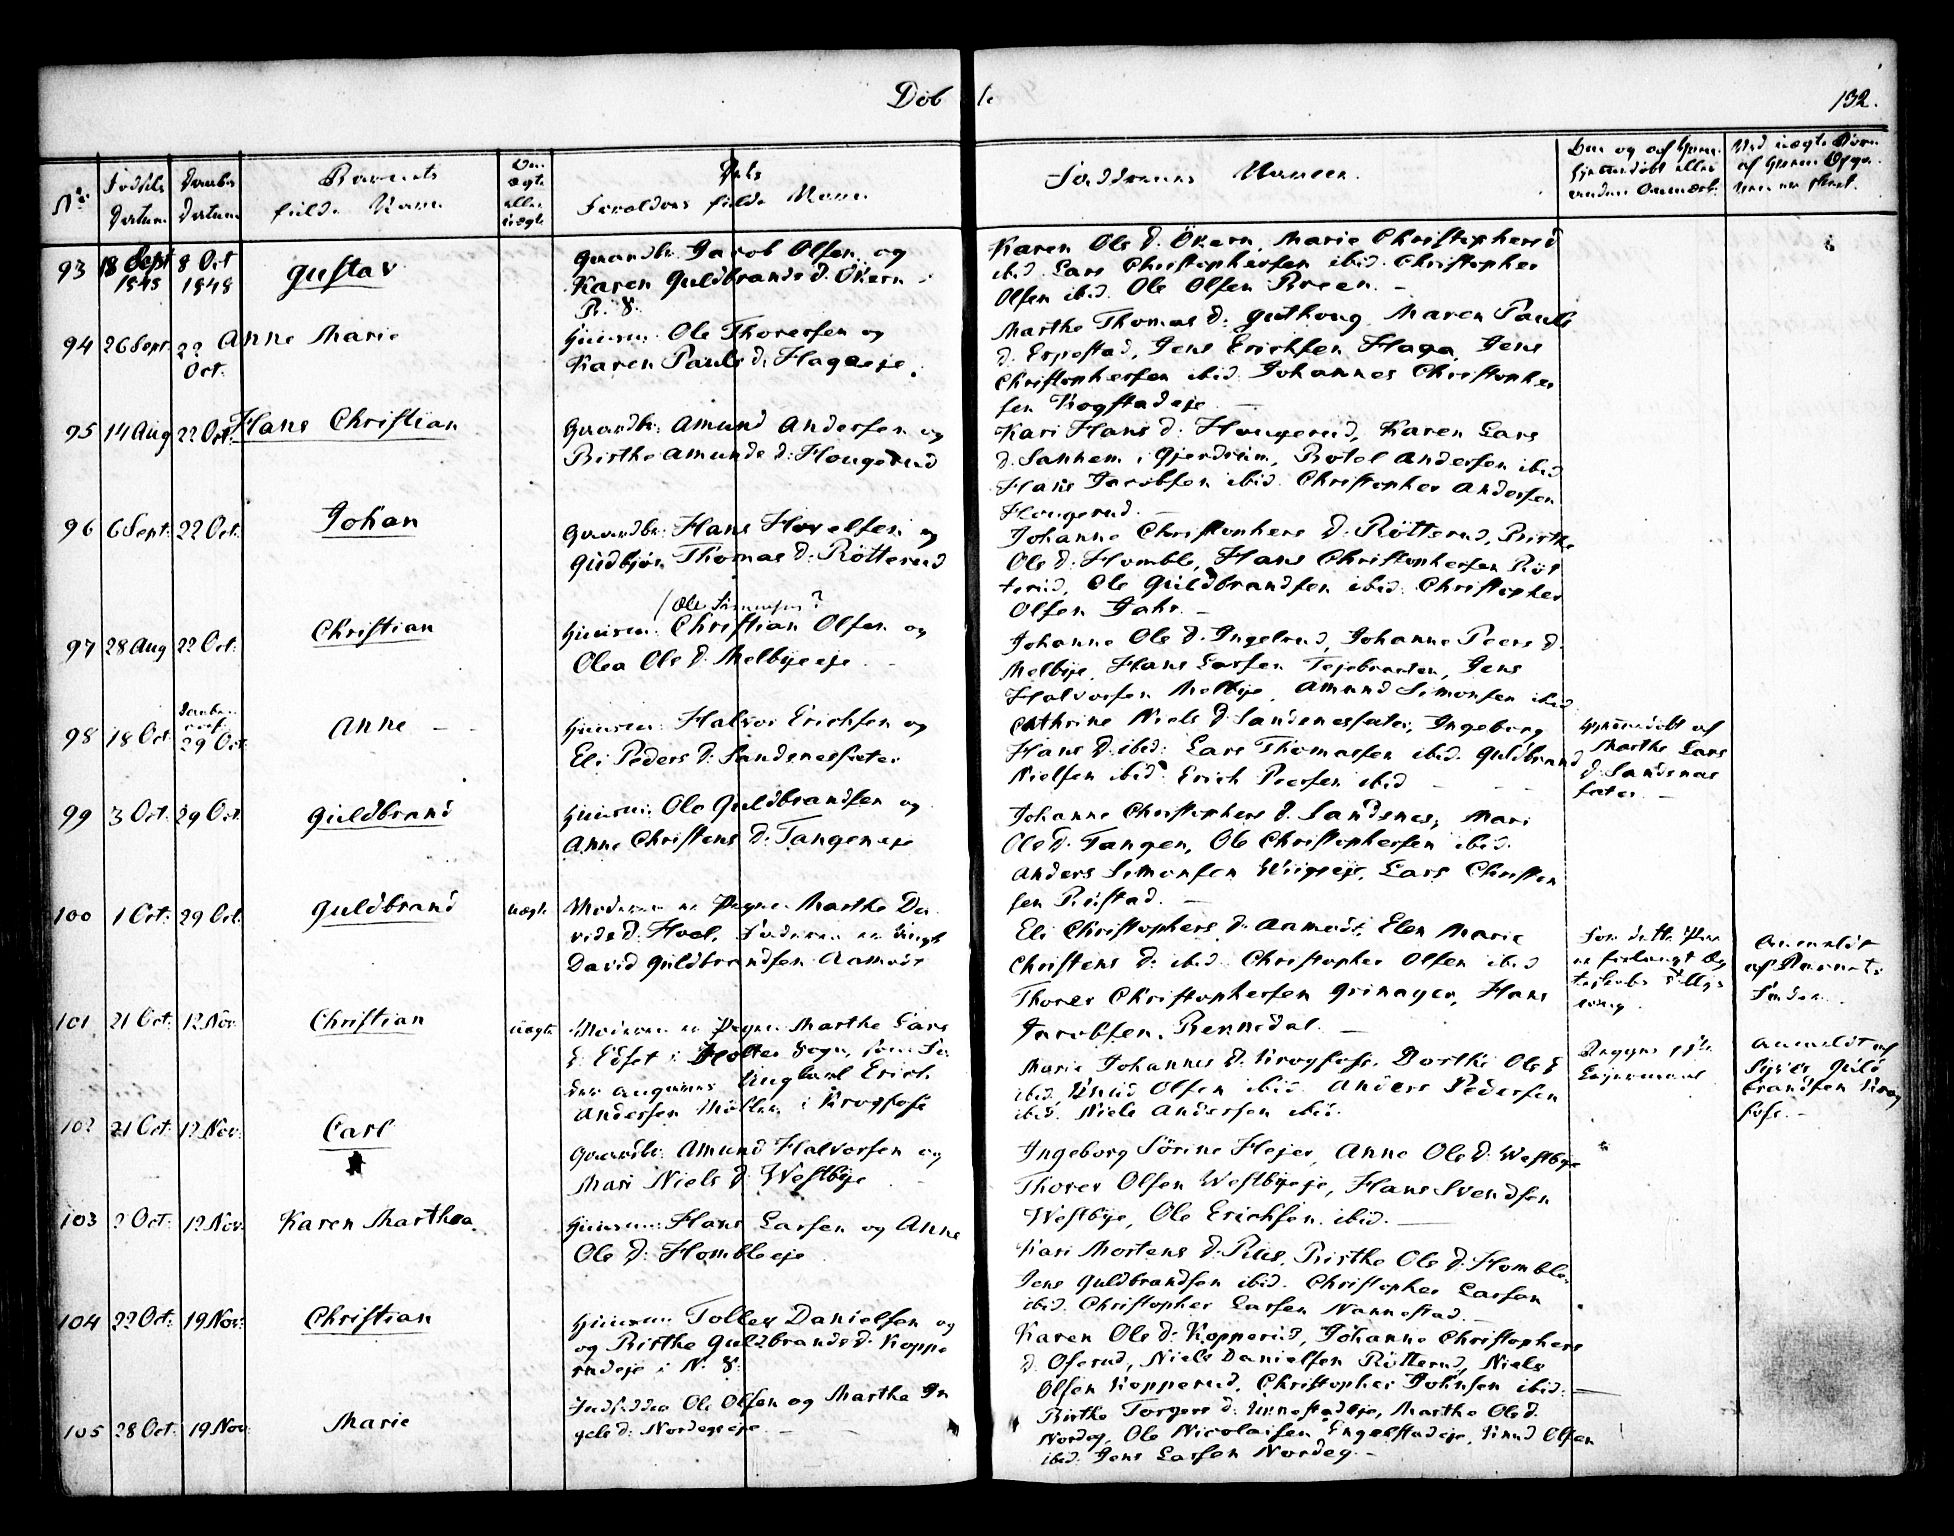 Døbte
132.
No.
Fødsels Datum
Daabs Datum
Barnets fulde Navn
Om ægte eller uægte
Dets Forældres fulde Navn
Faddernes Navne.
93 18 Sept 1848 8 Oct 1848 Gustav
Gaardbr. Jacob Olsen og
Karen Guldbrands d. Økern i
N. S.
Karen Ols d. Økern, Marie Christophers d
ibid. Lars Christophersen ibid. Christopher
Olsen ibid. Ole Olsen Breen. —
94 26 Sept 22 Oct. Anne Marie
Huusm. Ole Thoresen og
Karen Pauls d. Hagaeje.
Marthe Thomas d: Guthoug, Maren Pauls
d. Erpestad, Jens Erichsen Haga, Jens
Christophersen ibid. Johannes Christopher
sen Kogstadeje —
95 14 Aug 22 Oct. Hans Christian
Gaardbr: Amund Andersen og
Birthe Amunds d: Hougerud
Kari Hans d: Hougerud, Karen Lars
d. Sanhem i Gjerdrum, Botol Andersen ibid
Hans Jacobsen ibid. Christopher Andersen
Hougerud. —
96 6 Sept. 22 Oct. Johan
Gaardbr: Hans Hovelsen og
Gudbjør Thomas d: Røtterud
Johanne Christophers d. Røtterud, Birthe
Ols d. Homble, Hans Christophersen Røt
terud, Ole Guldbrandsen ibid. Christopher
Olsen Jahr. —
97 28 Aug 22 Oct. Christian
(Ole Simensen?
Huusm. Christian Olsen og
Olea Ols d. Melbyeeje —
Johanne Ols d. Ingelsrud, Johanne Peers d.
Melbye, Hans Larsen Tejebraaten, Jens
Halvorsen Melbye, Amund Simonsen ibid
98 18 Oct. 29 Oct. Anne —
Huusm: Halvor Erichsen og
Eli Peders d. Sandsnessæter
Cathrine Niels d. Sandsnessæter, Ingeborg
Hans d. ibid: Lars Thomassen ibid. Guldbrand
Nielsen ibid. Erich Peersen ibid —
Hjemmedøbt af
Marthe Lars
d. Sandsnes
sæter. —
99 3 Oct. 29 Oct. Guldbrand
Huusm: Ole Guldbrandsen og
Anne Christens d: Tangeneje
Johanne Christophers d. Sandsnes, Mari
Ols d. Tangen, Ole Christophersen ibid.
Anders Simonsen Wiigseje, Lars Christen
sen Røistad. —
100 1 Oct. 29 Oct. Guldbrand uægte
Moderen er Pigen Marthe Da
vids d. Hoel, Faderen er Ungk
David Guldbrandsen Aamodt
Eli Christophers d. Aamodt, Elen Marie
Christens d. ibid. Christopher Olsen ibid
Thorer Christophersen Grinager, Hans
Jacobsen Rennedal. —
Anmeldt
af Barnets
Fader.
101 21 Oct. 12 Nov. Christian uægte
Moderen er Pigen Marthe Lars
d. Edset i Holter Sogn, som Fa
der angives Ungkarl Erich
Andersen Møller i Krogfoss
Marie Johannes d. Krogfoss, Dorthe Ols d
ibid, Knud Olsen ibid. Anders Pedersen
ibid. Niels Andersen ibid.
Begges 1ste
Lejermaal
Anmeldt af
Syver Guld
brandsen Krog
foss. —
102 21 Oct. 12 Nov. Carl
Gaardbr: Amund Halvorsen og
Mari Niels d. Westbye
Ingeborg Sørine Hejer, Anne Ols d. Westbye
Thorer Olsen Westbyeeje, Hans Svendsen
Westbye, Ole Erichsen ibid. —
103 2 Oct. 12 Nov. Karen Marthea
Huusm: Hans Larsen og Anne
Ols d: Hombleeje
Kari Mortens d. Riis, Birthe Ols d. Homble
Jens Guldbrandsen ibid. Christopher Larsen
ibid. Christopher Larsen Nannestad. —
104 22 Oct. 19 Nov. Christian
Huusm: Tollev Danielsen og
og Birthe Guldbrands d. Koppe
rudeje i N. S.
Karen Ols d: Kopperud, Johanne Christophers
d. Oserud, Niels Danielsen Røtterud, Niels
Olsen Kopperud, Christopher Johnsen ibid. —
105 28 Oct. 19 Nov. Marie
Indsidder Ole Olsen og Marthe In
gels d: Nordegseje —
Birthe Torgers d: Unnestadeje, Marthe Ols d.
Nordeg, Ole Nicolaisen Engelstadeje, Knud Olsen
ibid. Jens Larsen Nordeg. —